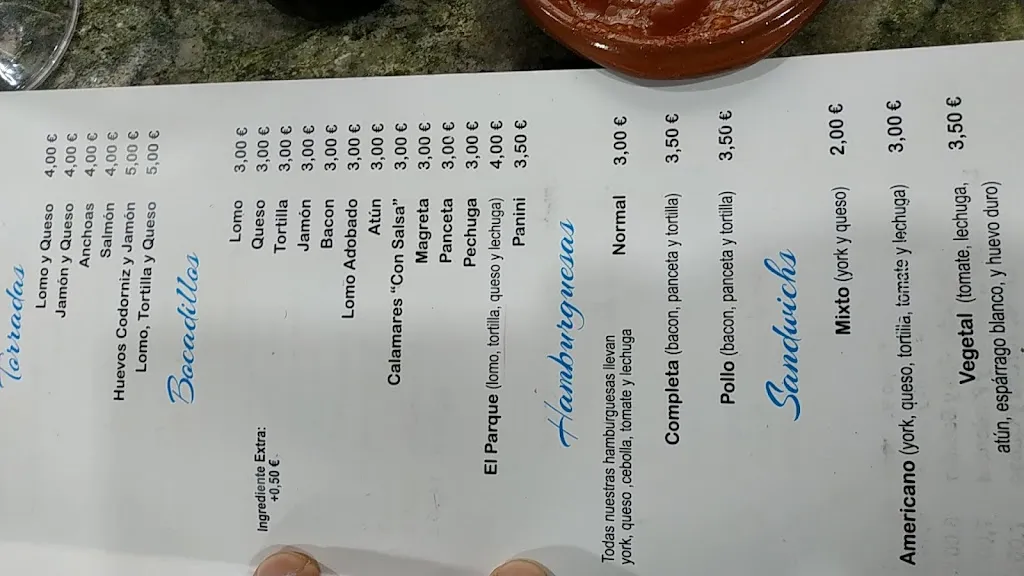 Torradas
Lomo y Queso 4,00 €
Jamón y Queso 4,00 €
Anchoas 4,00 €
Salmón 4,00 €
Huevos Codorniz y Jamón 5,00 €
Lomo, Tortilla y Queso 5,00 €
Bocadillos
Lomo 3,00 €
Queso 3,00 €
Tortilla 3,00 €
Jamón 3,00 €
Bacon 3,00 €
Lomo Adobado 3,00 €
Atún 3,00 €
Calamares "Con Salsa" 3,00 €
Magreta 3,00 €
Panceta 3,00 €
Pechuga 3,00 €
El Parque (lomo, tortilla, queso y lechuga) 4,00 €
Panini 3,50 €
Ingrediente Extra:
+0,50 €
Hamburguesas
Todas nuestras hamburguesas llevan
york, queso ,cebolla, tomate y lechuga
Normal 3,00 €
Completa (bacon, panceta y tortilla) 3,50 €
Pollo (bacon, panceta y tortilla) 3,50 €
Sandwichs
Mixto (york y queso) 2,00 €
Americano (york, queso, tortilla, tomate y lechuga) 3,00 €
Vegetal (tomate, lechuga, 3,50 €
atún, espárrago blanco, y huevo duro)